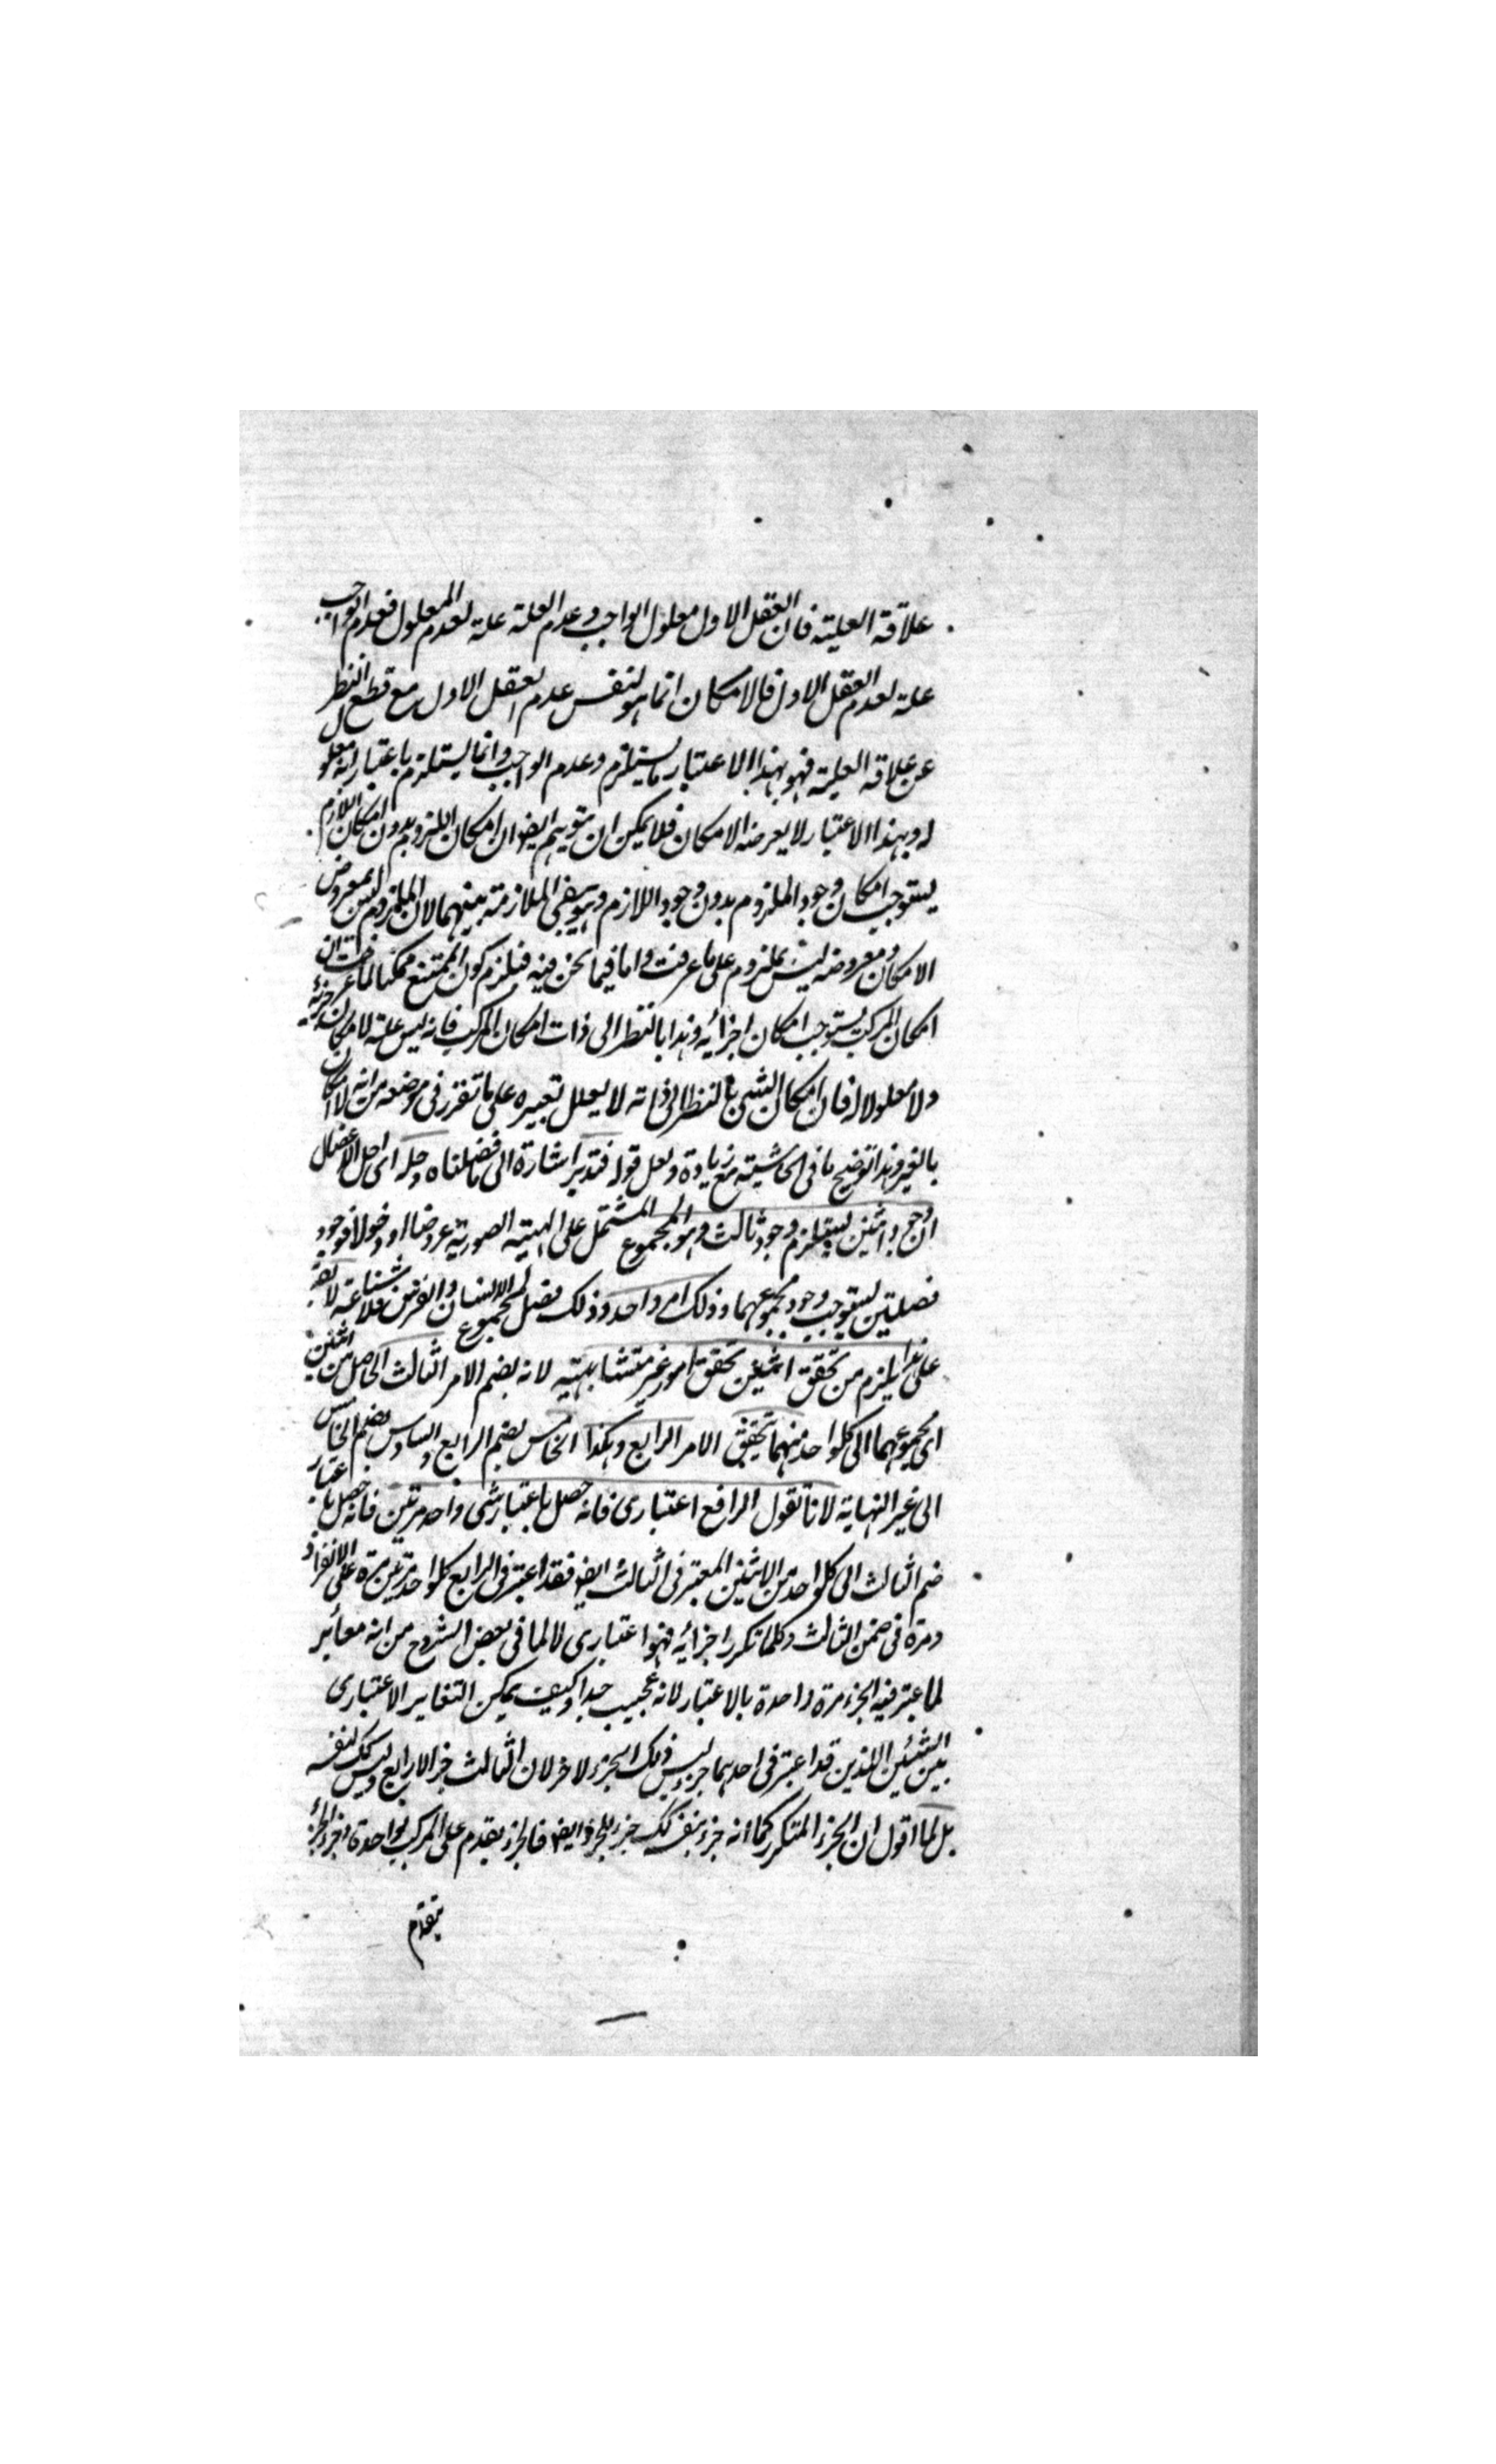 علاقة العلية فان العقل الاول معلول الواجب وعدم العلة علة لعدم المعلول فعدم الواجب
علة لعدم العقل الاول فالامكان انما هو لنفس عدم العقل الاول مع قطع النظر
عن علاقة العلية فهو بهذا الاعتبار ما يستلزم وعدم الواجب وانما يستلزم باعتبار انه معلول
له وبهذا الاعتبار لا يعرضه الامكان فلا يمكن ان يتوهم ايضا ان امكان الملزوم بدون امكان اللازم
يستوجب امكان وجود الملزوم بدون وجود اللازم وهو ينفى الملازمة بينهما لان الملزوم ليس بمعروض
الامكان ومعروضه ليس بملزوم على ما عرفت واما فيما نحن فيه فيلزم كون الممتنع ممكنا لما عرفت ان
امكان المركب يستوجب امكان اجزائه وهذا بالنظر الى ذات امكان المركب فانه ليس علة لامكان جزئه
ولا معلولا له فان امكان الشئ بالنظر الى ذاته لا يعلل بغيره على ما تقرر فى موضعه من انه لا امكان
بالغير وهذا توضيح ما فى الحاشية مع زيادة ولعل قوله فتدبر اشارة الى ما فصلناه وحله اى حل الاعضال
ان وجود اثنين يستلزم وجود ثالث وهو المجموع المشتمل على الهيئة الصورية عروضا او دخولا فوجود
فصلين يستوجب وجود مجموعهما وذلك امر واحد وذلك فصل لمجموع الانسان والفرس فلا شناعة لا يقال
على هذا يلزم من تحقق اثنين تحقق امور غير متناهية لانه بضم الامر الثالث الحاصل من اثنين
اى مجموعهما الى كلواحد منهما يتحقق الامر الرابع وهكذا الخامس بضم الرابع والسادس بضم الخامس
الى غير النهاية لانا نقول الرابع اعتبارى فانه حصل باعتبار شئ واحد مرتين فانه حصل باعتبار
ضم الثالث الى كلواحد من الاثنين المعتبر فى الثالث ايضا فقد اعتبر فى الرابع كلواحد مرتين مرة على الانفراد
ومرة فى ضمن الثالث وكلما تكرر اجزائه فهو اعتبارى لا لما فى بعض الشروح من انه مغائر
لما اعتبر فيه الجزء مرة واحدة بالاعتبار لانه عجيب جدا وكيف يمكن التغاير الاعتبارى
بين الشيئين اللذين قد اعتبر فى احدهما جزء ليس ذلك الجزء لاخر لان الثالث جزء الرابع وليس كك لنفسه
بل لما اقول ان الجزء المتكرر كما انه جزء بنفسه كك جزء للجزء ايضا فالجزء يتقدم على المركب بواحدة وجزء الجزء
يتقدم